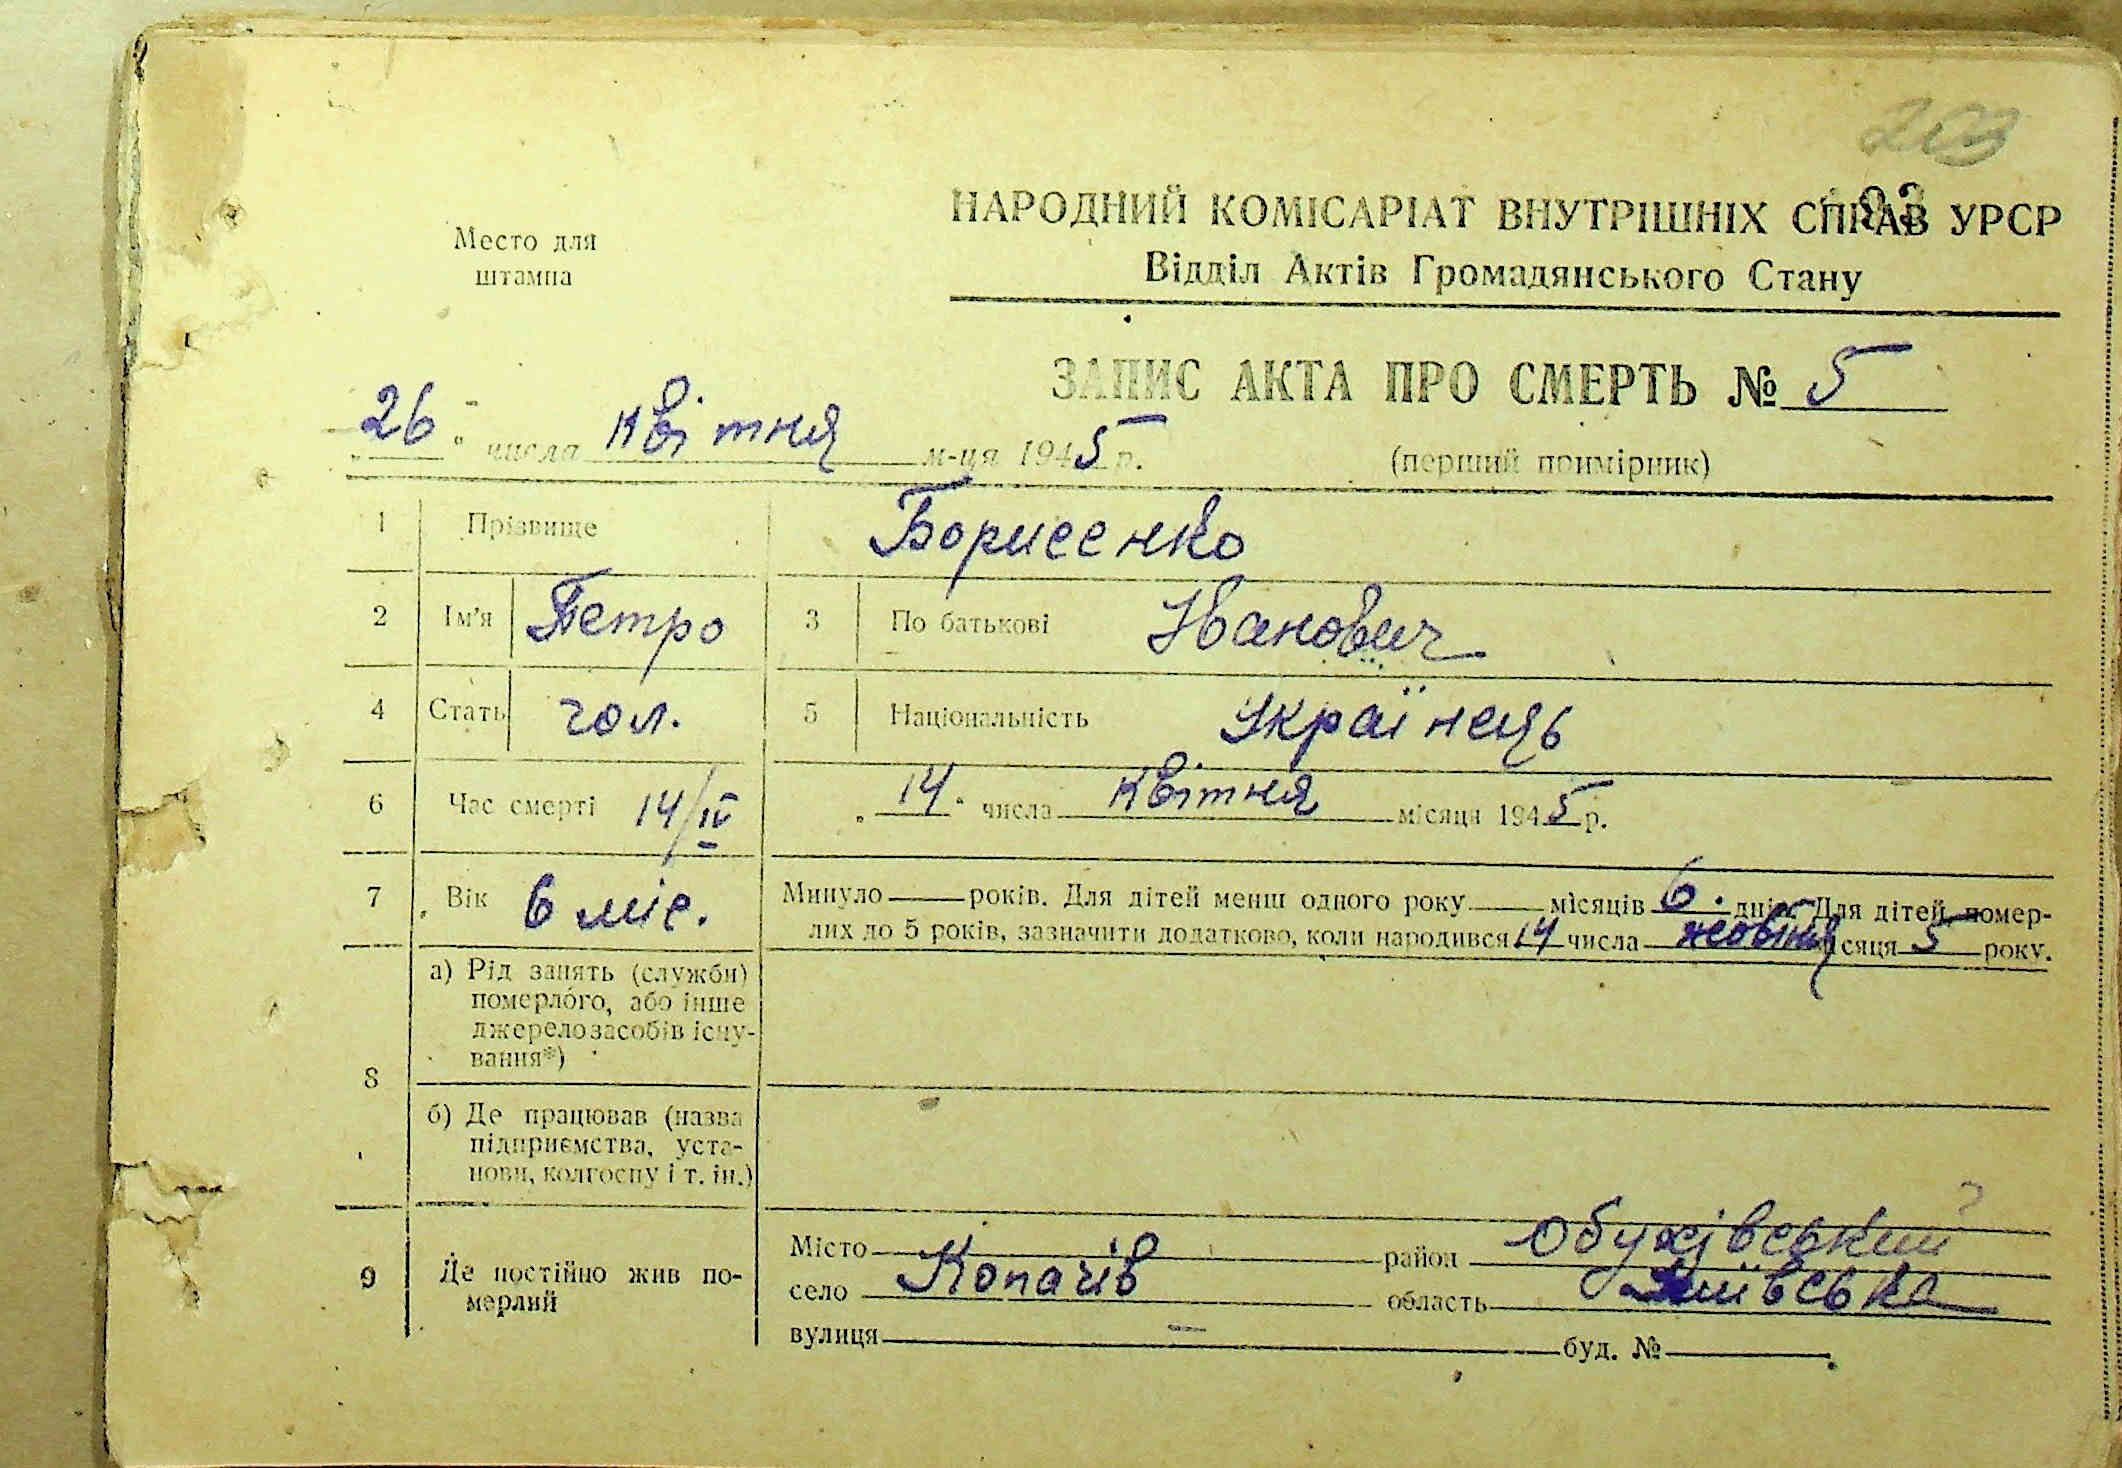 203
НАРОДНИЙ КОМІСАРІАТ ВНУТРІШНІХ СПРАВ УРСР
Место для
штампа
Відділ Актів Громадянського Стану
ЗАПИС АКТА ПРО СМЕРТЬ № 5
„26" числа квітня м-ця 1945 р.
(перший примірник)
1 Прізвище Борисенко
2 Ім'я Петро 3 По батькові Іванович
4 Стать чол. 5 Національність Українець
6 Час смерті 14/IV „14" числа квітня місяця 1945 р.
7 Вік 6 міс. Минуло — років. Для дітей менш одного року — місяців 6. днів. Для дітей помер-
лих до 5 років, зазначити додатково, коли народився 14 числа жовтня місяця 5 року.
8 а) Рід занять (служби)
померлого, або інше
джерело засобів існу-
вання*)
б) Де працював (назва
підприємства, уста-
нови, колгоспу і т. ін.)
9 Де постійно жив по-
мерлий
Місто район Обухівський
село Копачів область Київська
вулиця — буд. №